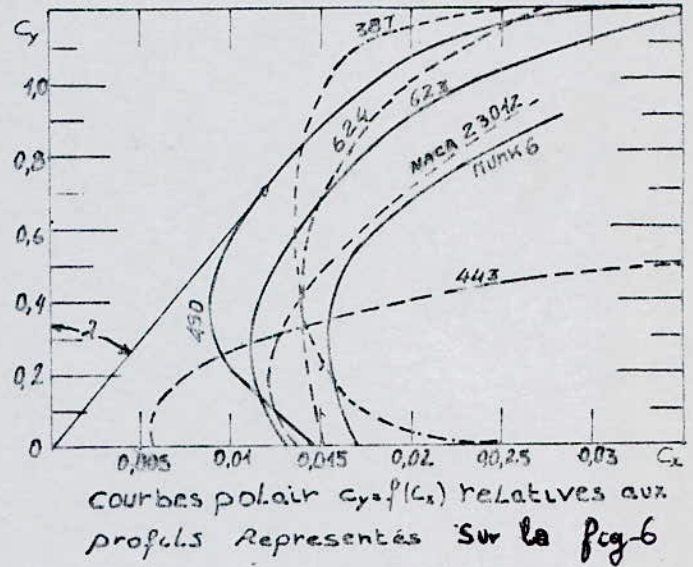 Cy
1,0
0,8
0,6
0,4
0,2
0
387
624
623
NACA 23012
MUNK 6
443
490
λ
0,005
0,01
0,015
0,02
0,025
0,03
Cx
courbes polair Cy=f(Cx) relatives aux
profils Representés sur la fig-6